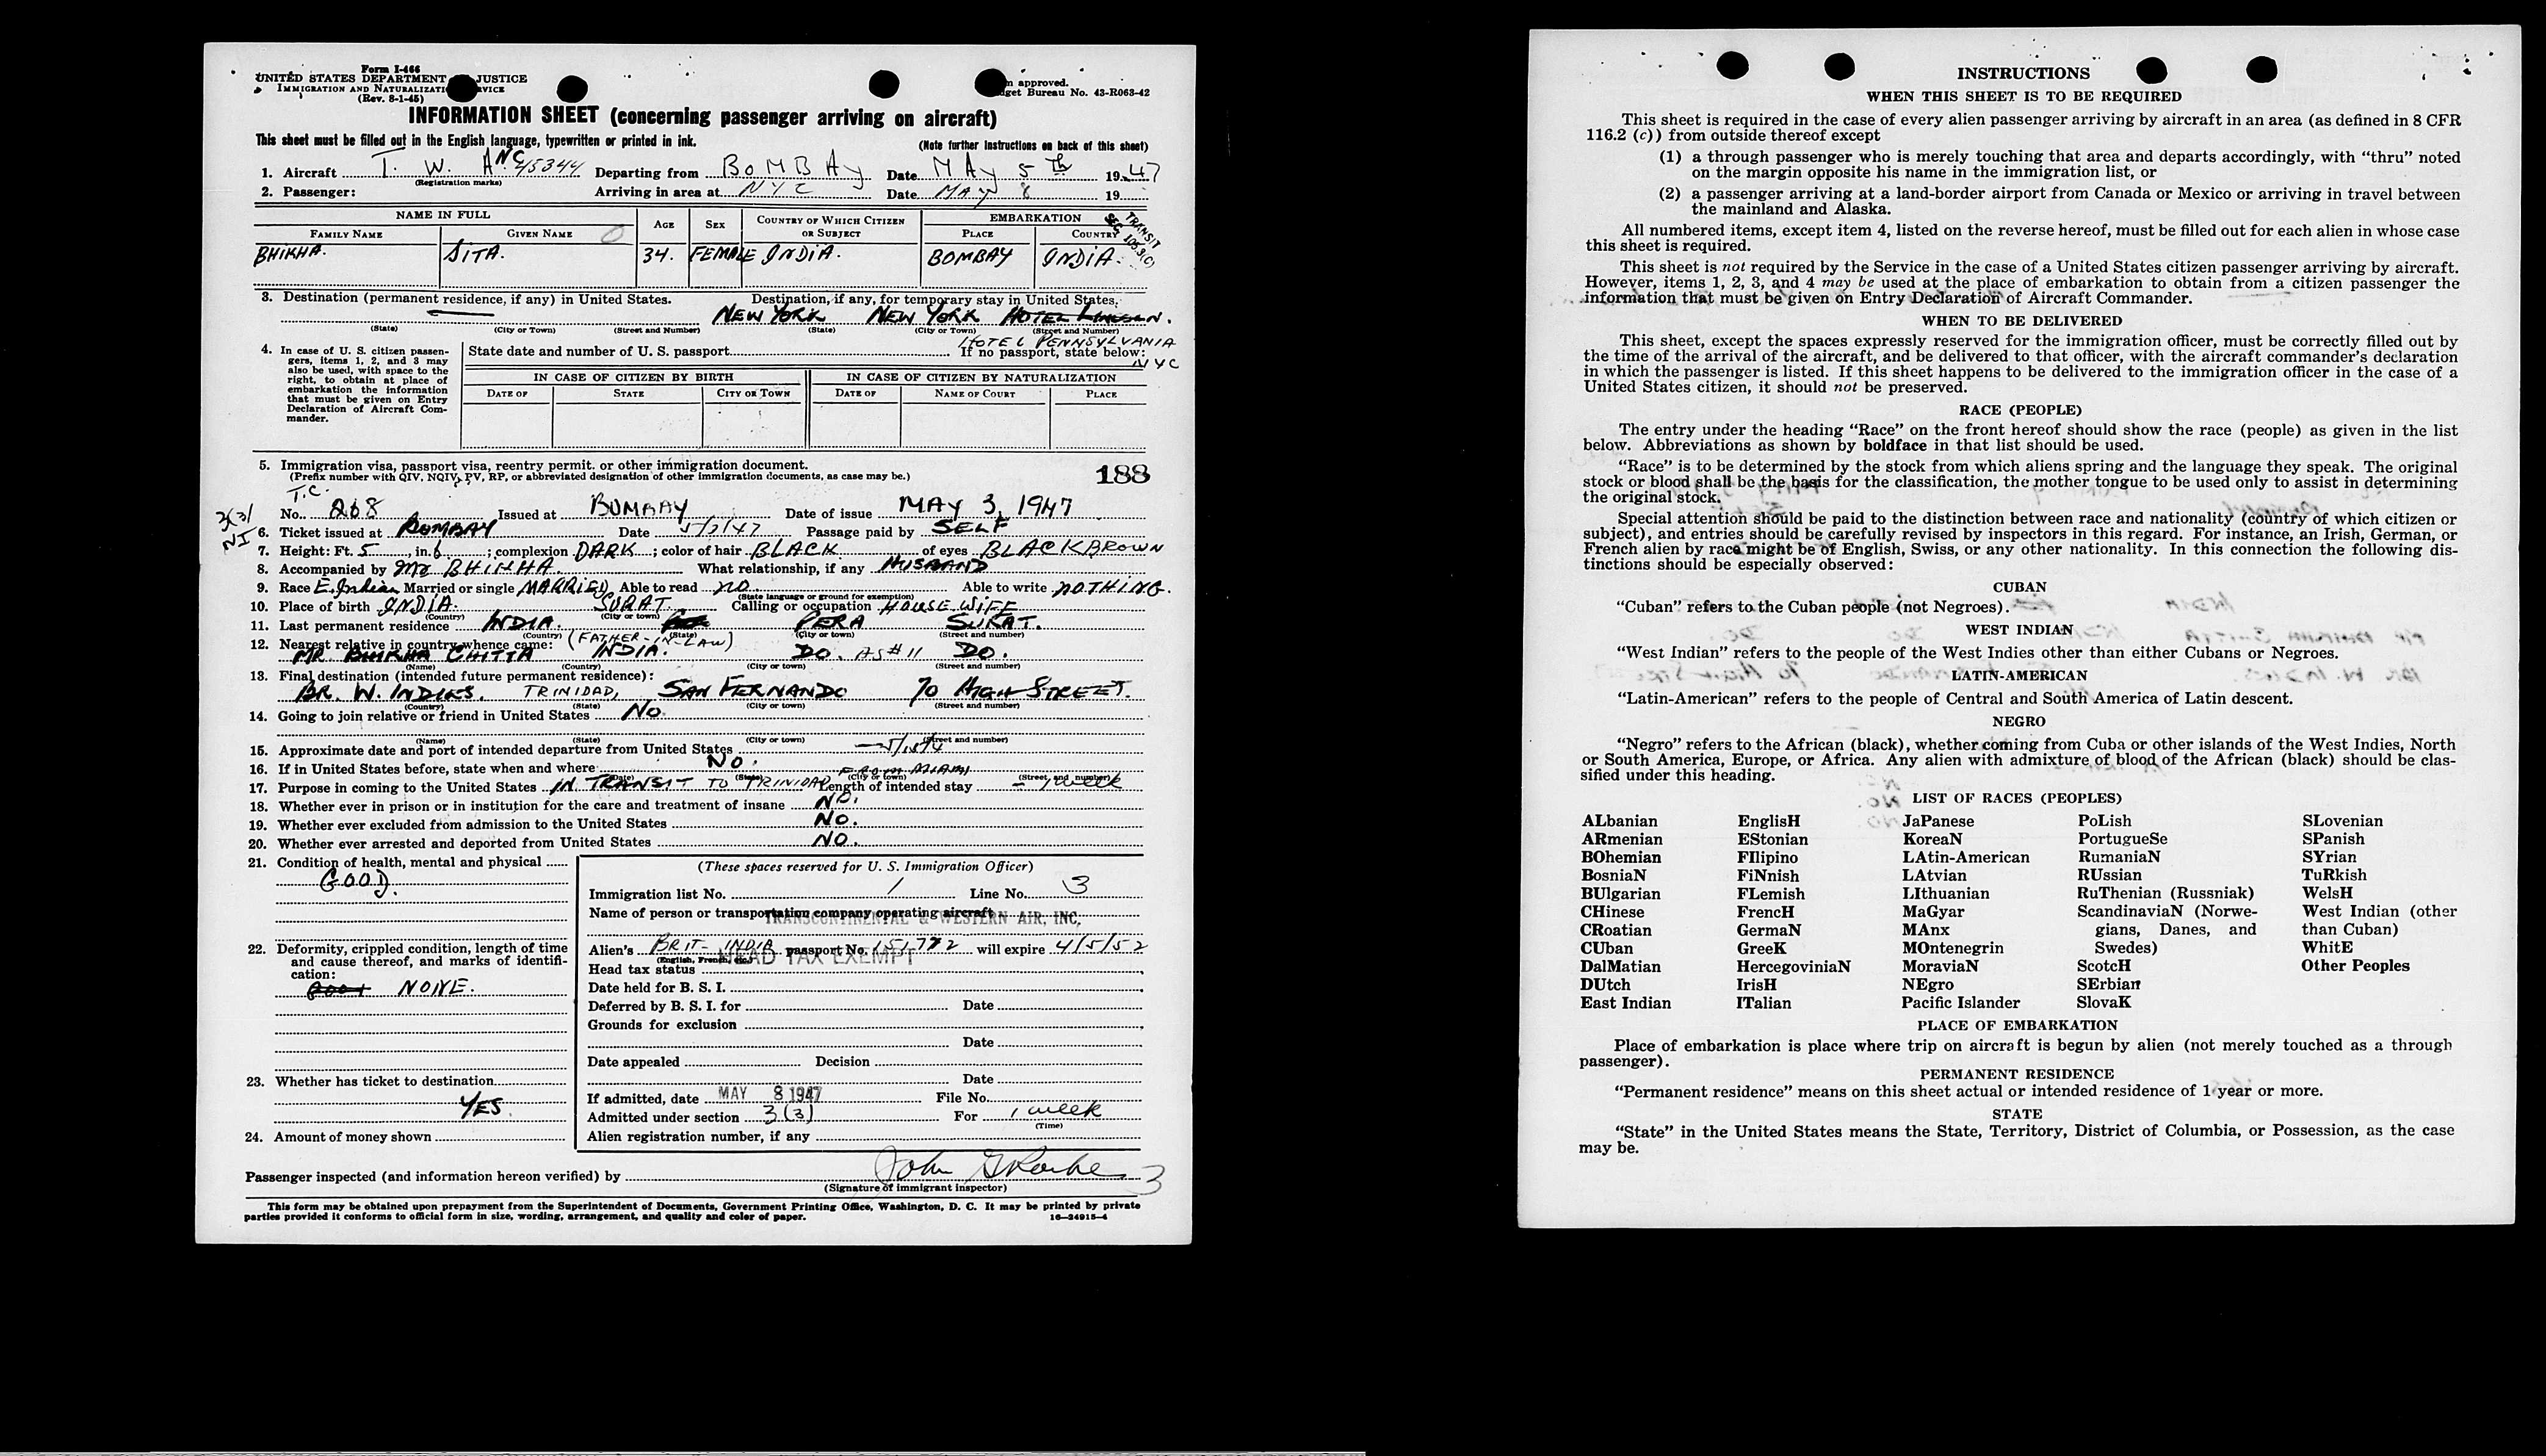 Form I-466
UNITED STATES DEPARTMENT JUSTICE
IMMIGRATION AND NATURALIZATI RVICE
(Rev. 8-1-45)
m approved.
get Bureau No. 43-R063-42
INFORMATION SHEET (concerning passenger arriving on aircraft)
This sheet must be filled out in the English language, typewritten or printed in ink.
(Note further instructions on back of this sheet)
1. Aircraft T. W. A NC 45344 Departing from BOMBAY Date MAY 5th 1947
(Registration marks)
2. Passenger: Arriving in area at NYC Date MAY 8 19
NAME IN FULL AGE SEX COUNTRY OF WHICH CITIZEN OR SUBJECT EMBARKATION
FAMILY NAME GIVEN NAME PLACE COUNTRY
TRANSIT
SEC. 105.3(C)
BHIKHA. SITA. 34. FEMALE INDIA. BOMBAY INDIA.
3. Destination (permanent residence, if any) in United States. Destination, if any, for temporary stay in United States.
NEW YORK NEW YORK HOTEL LINCOLN.
(State) (City or Town) (Street and Number) (State) (City or Town) (Street and Number)
HOTEL PENNSYLVANIA
NYC
4. In case of U. S. citizen passengers, items 1, 2, and 3 may also be used, with space to the right, to obtain at place of embarkation the information that must be given on Entry Declaration of Aircraft Commander.
State date and number of U. S. passport If no passport, state below:
IN CASE OF CITIZEN BY BIRTH IN CASE OF CITIZEN BY NATURALIZATION
DATE OF STATE CITY OR TOWN DATE OF NAME OF COURT PLACE
5. Immigration visa, passport visa, reentry permit. or other immigration document.
(Prefix number with QIV, NQIV, PV, RP, or abbreviated designation of other immigration documents, as case may be.)
188
T.C.
No. 268 Issued at BOMBAY Date of issue MAY 3, 1947
3(3)
NI
6. Ticket issued at BOMBAY Date 5/3/47 Passage paid by SELF
7. Height: Ft. 5, in. 6; complexion DARK; color of hair BLACK of eyes BLACK BROWN
8. Accompanied by Mr BHIKHA. What relationship, if any HUSBAND
9. Race E. Indian Married or single MARRIED Able to read NO. Able to write NOTHING.
(State language or ground for exemption)
10. Place of birth INDIA. SURAT. Calling or occupation HOUSE WIFE
(Country) (City or town)
11. Last permanent residence INDIA. PERA SURAT.
(Country) (State) (City or town) (Street and number)
12. Nearest relative in country whence came: (FATHER-IN-LAW)
MR. BHIKHA CHITTA INDIA. DO. AS #11 DO.
(Name) (Country) (City or town) (Street and number)
13. Final destination (intended future permanent residence):
BR. W. INDIES. TRINIDAD, SAN FERNANDO 70 HIGH STREET.
(Country) (State) (City or town) (Street and number)
14. Going to join relative or friend in United States No.
(Name) (State) (City or town) (Street and number)
15. Approximate date and port of intended departure from United States
FROM MIAMI
16. If in United States before, state when and where No.
(Date) (State) (City or town) (Street and number)
17. Purpose in coming to the United States IN TRANSIT TO TRINIDAD Length of intended stay 1 week
18. Whether ever in prison or in institution for the care and treatment of insane NO.
19. Whether ever excluded from admission to the United States NO.
20. Whether ever arrested and deported from United States NO.
21. Condition of health, mental and physical
GOOD.
22. Deformity, crippled condition, length of time and cause thereof, and marks of identification:
NONE.
23. Whether has ticket to destination
YES.
24. Amount of money shown
(These spaces reserved for U. S. Immigration Officer)
Immigration list No. 1 Line No. 3
Name of person or transportation company operating aircraft
TRANSCONTINENTAL & WESTERN AIR, INC.
Alien's BRIT-INDIA passport No. 151772 will expire 4/5/52
(English, French, etc.)
HEAD TAX EXEMPT
Head tax status
Date held for B. S. I.
Deferred by B. S. I. for Date
Grounds for exclusion
Date
Date appealed Decision
Date
If admitted, date MAY 8 1947 File No.
Admitted under section 3(3) For 1 week
(Time)
Alien registration number, if any
Passenger inspected (and information hereon verified) by John 3
(Signature of immigrant inspector)
This form may be obtained upon prepayment from the Superintendent of Documents, Government Printing Office, Washington, D. C. It may be printed by private
parties provided it conforms to official form in size, wording, arrangement, and quality and color of paper. 16—24915-4
INSTRUCTIONS
WHEN THIS SHEET IS TO BE REQUIRED
This sheet is required in the case of every alien passenger arriving by aircraft in an area (as defined in 8 CFR
116.2 (c)) from outside thereof except
(1) a through passenger who is merely touching that area and departs accordingly, with "thru" noted
on the margin opposite his name in the immigration list, or
(2) a passenger arriving at a land-border airport from Canada or Mexico or arriving in travel between
the mainland and Alaska.
All numbered items, except item 4, listed on the reverse hereof, must be filled out for each alien in whose case
this sheet is required.
This sheet is not required by the Service in the case of a United States citizen passenger arriving by aircraft.
However, items 1, 2, 3, and 4 may be used at the place of embarkation to obtain from a citizen passenger the
information that must be given on Entry Declaration of Aircraft Commander.
WHEN TO BE DELIVERED
This sheet, except the spaces expressly reserved for the immigration officer, must be correctly filled out by
the time of the arrival of the aircraft, and be delivered to that officer, with the aircraft commander's declaration
in which the passenger is listed. If this sheet happens to be delivered to the immigration officer in the case of a
United States citizen, it should not be preserved.
RACE (PEOPLE)
The entry under the heading "Race" on the front hereof should show the race (people) as given in the list
below. Abbreviations as shown by boldface in that list should be used.
"Race" is to be determined by the stock from which aliens spring and the language they speak. The original
stock or blood shall be the basis for the classification, the mother tongue to be used only to assist in determining
the original stock.
Special attention should be paid to the distinction between race and nationality (country of which citizen or
subject), and entries should be carefully revised by inspectors in this regard. For instance, an Irish, German, or
French alien by race might be of English, Swiss, or any other nationality. In this connection the following dis-
tinctions should be especially observed:
CUBAN
"Cuban" refers to the Cuban people (not Negroes).
WEST INDIAN
"West Indian" refers to the people of the West Indies other than either Cubans or Negroes.
LATIN-AMERICAN
"Latin-American" refers to the people of Central and South America of Latin descent.
NEGRO
"Negro" refers to the African (black), whether coming from Cuba or other islands of the West Indies, North
or South America, Europe, or Africa. Any alien with admixture of blood of the African (black) should be clas-
sified under this heading.
LIST OF RACES (PEOPLES)
ALbanian EnglisH JaPanese PoLish SLovenian
ARmenian EStonian KoreaN PortugueSe SPanish
BOhemian FIlipino LAtin-American RumaniaN SYrian
BosniaN FiNnish LAtvian RUssian TuRkish
BUlgarian FLemish LIthuanian RuThenian (Russniak) WelsH
CHinese FrencH MaGyar ScandinaviaN (Norwe- West Indian (other
CRoatian GermaN MAnx gians, Danes, and than Cuban)
CUban GreeK MOntenegrin Swedes) WhitE
DalMatian HercegoviniaN MoraviaN ScotcH Other Peoples
DUtch IrisH NEgro SErbian
East Indian ITalian Pacific Islander SlovaK
PLACE OF EMBARKATION
Place of embarkation is place where trip on aircraft is begun by alien (not merely touched as a through
passenger).
PERMANENT RESIDENCE
"Permanent residence" means on this sheet actual or intended residence of 1 year or more.
STATE
"State" in the United States means the State, Territory, District of Columbia, or Possession, as the case
may be.